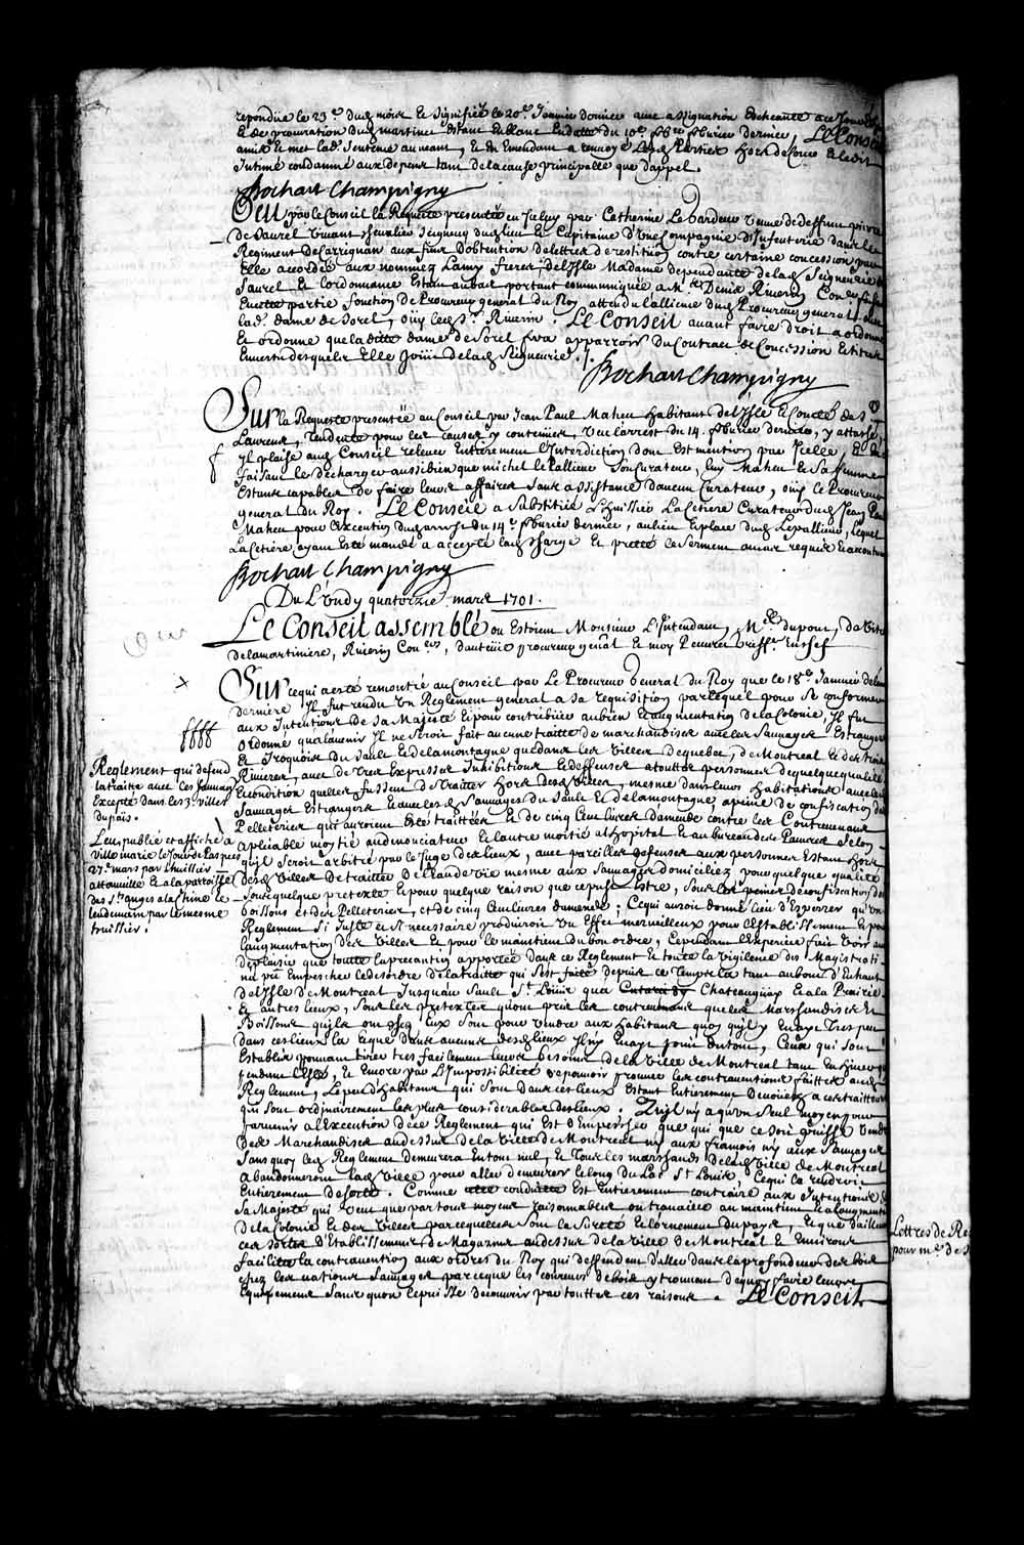 repondüe le 23.e dud. mois et signifiée le 20.e Janvier dernier avec assignation
et de procuration dud. martinet estant en blanc en datte du 10.e feburier dernier, Le Conseil
a mis et met lad. sentence au neant, et en Emendant a renvoyé led. hors de Cour et led.
Intimé condamné aux depens tant de la cause principalle que d'appel.
Bochart Champigny
Veu par le Conseil la Requeste presentée en Iceluy par Catherine Le Gardeur veuve de deffunt pierre
de Saurel vivant chevalier seigneur dud. lieu et Capitaine d'Une Compagnie d'Infenterie dans le
Regiment de Carrignan aux fins d'obtention de lettres de restitution contre certaine concession par
Elle accordée aux nommez Lamy freres, de l'Isle Madame dependante de lad. Seigneurie de
Saurel Et l'ordonnance Estant au bas portant communiquée a M.e Denis Riverin Con.er faisant
En cette partie fonction de Procureur general du Roy attendu l'alliance dud. Procureur general avec
lad. dame de Sorel, oüy led. S.r Riverin. Le Conseil avant faire droit a ordonné
Et ordonne que ladite dame de Sorel fera apparroir du Contract de Concession et titres
En vertu desquels Elle Joüit de lad. Seigneurie ./.
Bochart Champigny
Sur la Requeste presentée au Conseil par Jean Paul Maheu habitant de l'Isle et Comté de S.t
Laurens, Tendente pour les causes y contenües, Veu l'arrest du 14. feburier dernier, y attaché,
Jl plaise aud. Conseil relever Entierement l'Interdiction dont Est mention par Jcelle, Et ce
faisant le décharger aussi bien que michel le Pallieur son Curateur, luy Maheu et sa femme
Estant capables de faire leurs affaires sans assistance d'aucun Curateur, oüy le Procureur
general du Roy. Le Conseil a substitüé l'huissier La Cetiere Curateur dud. Jean Paul
Maheu pour l'execution dud. arrest du 14.e feburier dernier, au lieu et place dud. Lepallieur, lequel
La Cetiere ayant Esté mandé a accepté lad. charge Et presté le serment au cas requis Et accoutumé
Bochart Champigny
Du L'undy quatorzie. mars 1701.
Le Conseil assemblé ou Estoient Monsieur L'Intendant, M.rs dupont, de Vitré
delamartiniere, Riverin Con.ers, dauteüil procureur gñal et moy Peuvret Greff.r En chef
Sur ce qui a esté remontré au Conseil par Le Procureur General du Roy que le 18.e Janvier de l'année
derniere Jl fut rendu Un Reglement general a sa requisition par lequel pour se conformer
aux Intentions de Sa Majesté Et pour contribüer au bien Et augmentation de la Colonie, Jl fut
ordonné qu'a l'avenir Jl ne seroit fait aucune traitte de marchandises avec les Sauvages Estrangers
Et Iroquois du Sault Et de la montagne que dans les Villes de quebec, de Montreal et des trois
Rivieres, avec de tres Expresses Inhibitions Et deffenses a touttes personnes de quelque qualité
Et condition quelles fussent de traitter hors desd. Villes, mesme dans leurs habitations avec les
Sauvages Estrangers Et avec lesd. Sauvages du Sault Et de la montagne, a peine de confiscation des
Pelleteries qui auroient Esté traittées Et de cinq Cens livres damende contre les Contrevenans
aplicable moytié au denonciateur Et l'autre moitié a l'hopital Et au bureau des Pauvres selon
quil seroit arbitré par le Juge des lieux, avec pareilles defenses aux personnes Estant hors
desd. Villes De traitter de l'eau de vie mesme aux Sauvages domiciliez pour quelque qualité
sous quelque pretexte Et pour quelque raison que ce puisse Estre, sous les peines de confiscation des
boissons et des Pelleteries, et de cinq Cens livres damende; Ce qui auroit donné lieu d'Esperer qu'un
Reglement si Juste Et si necessaire produiroit Un Effet merveilleux pour l'Establissement Et pour
l'augmentation des Villes Et pour le maintien du bon ordre, Cependant l'Experience fait voir avec
deplaisir que toutte la precaution apportée dans ce Reglement Et toute la vigilence des Magistrats
n'a pû Empescher le desordre de la traitte qui s'est faite depuis ce Temps la tant au bout d'Enhaut
de l'Isle de Montreal Jusqu'au Sault S.t Loüis qua Chateauguay Et a la Prairie
Et autres lieux, sous les pretextes quont pris les contrevenans que les Marchandises Et
Boissons quils ont chez Eux sont pour vendre aux habitans quoy quil y En ayt Tres peu
dans ces lieux la Et que dans aucuns desd. lieux Jl ny En ayt point du tout, Ceux qui sont
Establis pouvant tirer tres facilement leurs besoins de la Ville de Montreal tant En hiver que
pendant l'Esté, Et Encore par l'Impossibilité de pouvoir prouver les contraventions faittes aud.
Reglement, Le peu d'habitans qui sont dans ces lieux Estant Entierement devoüez a ces traitteurs
qui sont ordinairement les plus considerables des lieux. Quil ny a qu'un seul moyen pour
parvenir a l'Execution dece Reglement qui est d'Empescher que qui que ce soit puisse Vendre
des Marchandises au dessus de la Ville de Montreal ny aux françois ny aux Sauvages
sans quoy led. Reglement demeurera En tout nul, Et Tous les marchands de lad. Ville de Montreal
abandonneront lad. Ville pour aller demeurer le long du Lac S.t Louis, Ce qui la rendroit
Entierement deserte. Comme cette conduitte Est Entierement contraire aux Intentions de
Sa Majesté qui veut que par tous moyens raisonnables on travaille au maintien Et a l'augmentation
de la Colonie Et des Villes par lesquelles sont la sureté Et l'ornement du pays, Et que d'ailleurs
ces sortes d'Etablissemens, de Magazins au dessus de la Ville de Montreal Et Environs
facilite la contravention aux ordres du Roy qui deffendent d'aller dans la profondeur des bois
chez les nations Sauvages parce que les coureurs de bois y trouvent dequoy faire leurs
Equipemens sans quon le puisse decouvrir par touttes ces raisons. Le Conseil
Reglement qui defend
la traitte avec les sauvages
Excepté dans les 3. villes
du païs.
Leu, publié et affiché a
Ville marie le Jour de Pasques
27.e mars par l'huissier
attanville Et a la parroisse
des S.ts anges a la Chine le
lendemain par le mesme
huissier.
Lettres de Re
pour m.e de